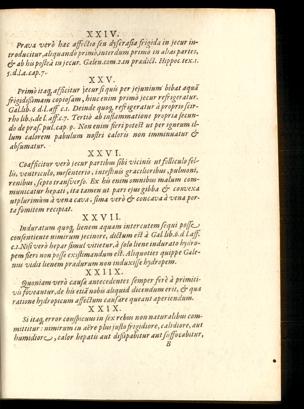 XXIV.
Prava verò hæc affectio seu dyscrasia frigida in jecur in
troducitur, aliquando primò, interdum primò in alvas partes,
& ab his postea in jecur. Galen. com. 2. in prædict. Hippoc. tex. 1.
5. d. l. a. cap. 7.
XXV.
Primò itaq, afficitur jecur si quis per jejunium bibat aquã
frigidissimam copiosam, hinc enim primò jecur refrigeratur.
Gal. lib. 6. d. l. aff. c. 1. Deinde quoq, refrigeratur à proprio scir-
rho lib. 5. de l. aff. c. 7. Tertiò ab inflammatione propria jecun-
do de præs. pul. cap. 9. Non enim fieri potest ut per igneum il-
lum calorem pabulum nostri caloris non imminuatur &
absumatur.
XXVI.
Coafficitur verò jecur partibus sibi vicinis ut folliculo fel-
lis, ventriculo, mesenterio, intestinis gracilioribus, pulmoni,
renibus, septo transverso. Ex his enim omnibus malum com-
municatur hepati, ita tamen ut pars ejus gibba & convexa
utplurimùm à vena cava, sima verò & concava à vena por-
ta fomitem recipiat.
XXVII.
Induratum quoq, lienem aquam intercutem sequi posse
consentiente nimirum jecinore, dictum est à Gal. lib. 6. d. l. aff.
c. 1. Nisi verò hepar simul vitietur, à sole liene indurato hydro-
pem fieri non posse existimandum est. Aliquoties quippe Gale-
nus vidit lienem prædurum non induxisse hydropem.
XXIIX.
Quoniam verò causæ antecedentes semper ferè à primiti-
vis foveantur, de his etiã nobis aliquid dicendum erit, & qua
ratione hydropicum affectum causare queant aperiendum.
XXIX.
Si itaq, error conspicuus in sex rebus non naturalibus com-
mittitur: nimirum in aëre plus justo frigidiore, calidiore, aut
humidiore, calor hepatis aut dissipabitur aut suffocabitur,
B